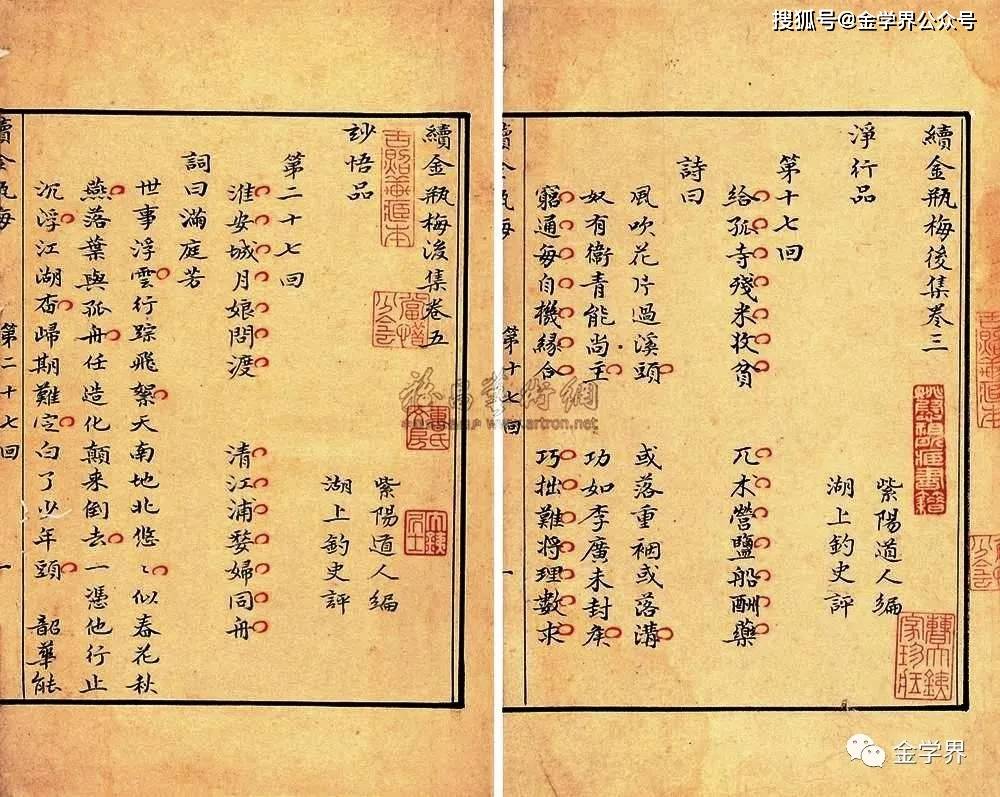 搜狐号@金学界公众号
續金瓶梅後集卷三
淨行品
紫陽道人編
湖上釣史評
第十七回
給孤寺殘米收貧
兀朮營鹽船酬藥
詩曰
風吹花片過溪頭 或落重裀或落溝
奴有衛青能尚主 功如李廣未封侯
窮通每自機緣合 巧拙難將理數求
第十七回
續金瓶梅後集卷五
妙悟品
紫陽道人編
湖上釣史評
第二十七回
淮安城月娘問渡
清江浦婺婦同舟
詞曰滿庭芳
世事浮雲行踪飛絮天南地北悠〻似春花秋
燕落葉與孤舟任造化顛来倒去一憑他行止
沉浮江湖杳歸期難定白了少年頭 韶華能
續金瓶梅
第二十七回
一
www.artron.net
金学界